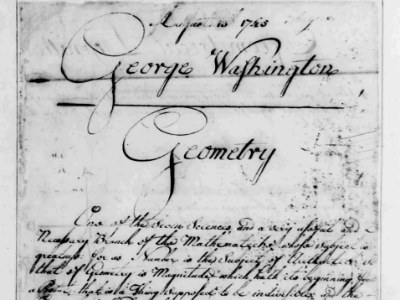 August 13 1745
George Washington
Geometry
One of the Seven Sciences, and a very useful and
Necessary Branch of the Mathematicks, whose Subject is
greatness: for as Number is the Subject of Arithmetick, so
that of Geometry is Magnitude, which hath its beginning from
a Point, that is a Thing supposed to be indivisible, and the